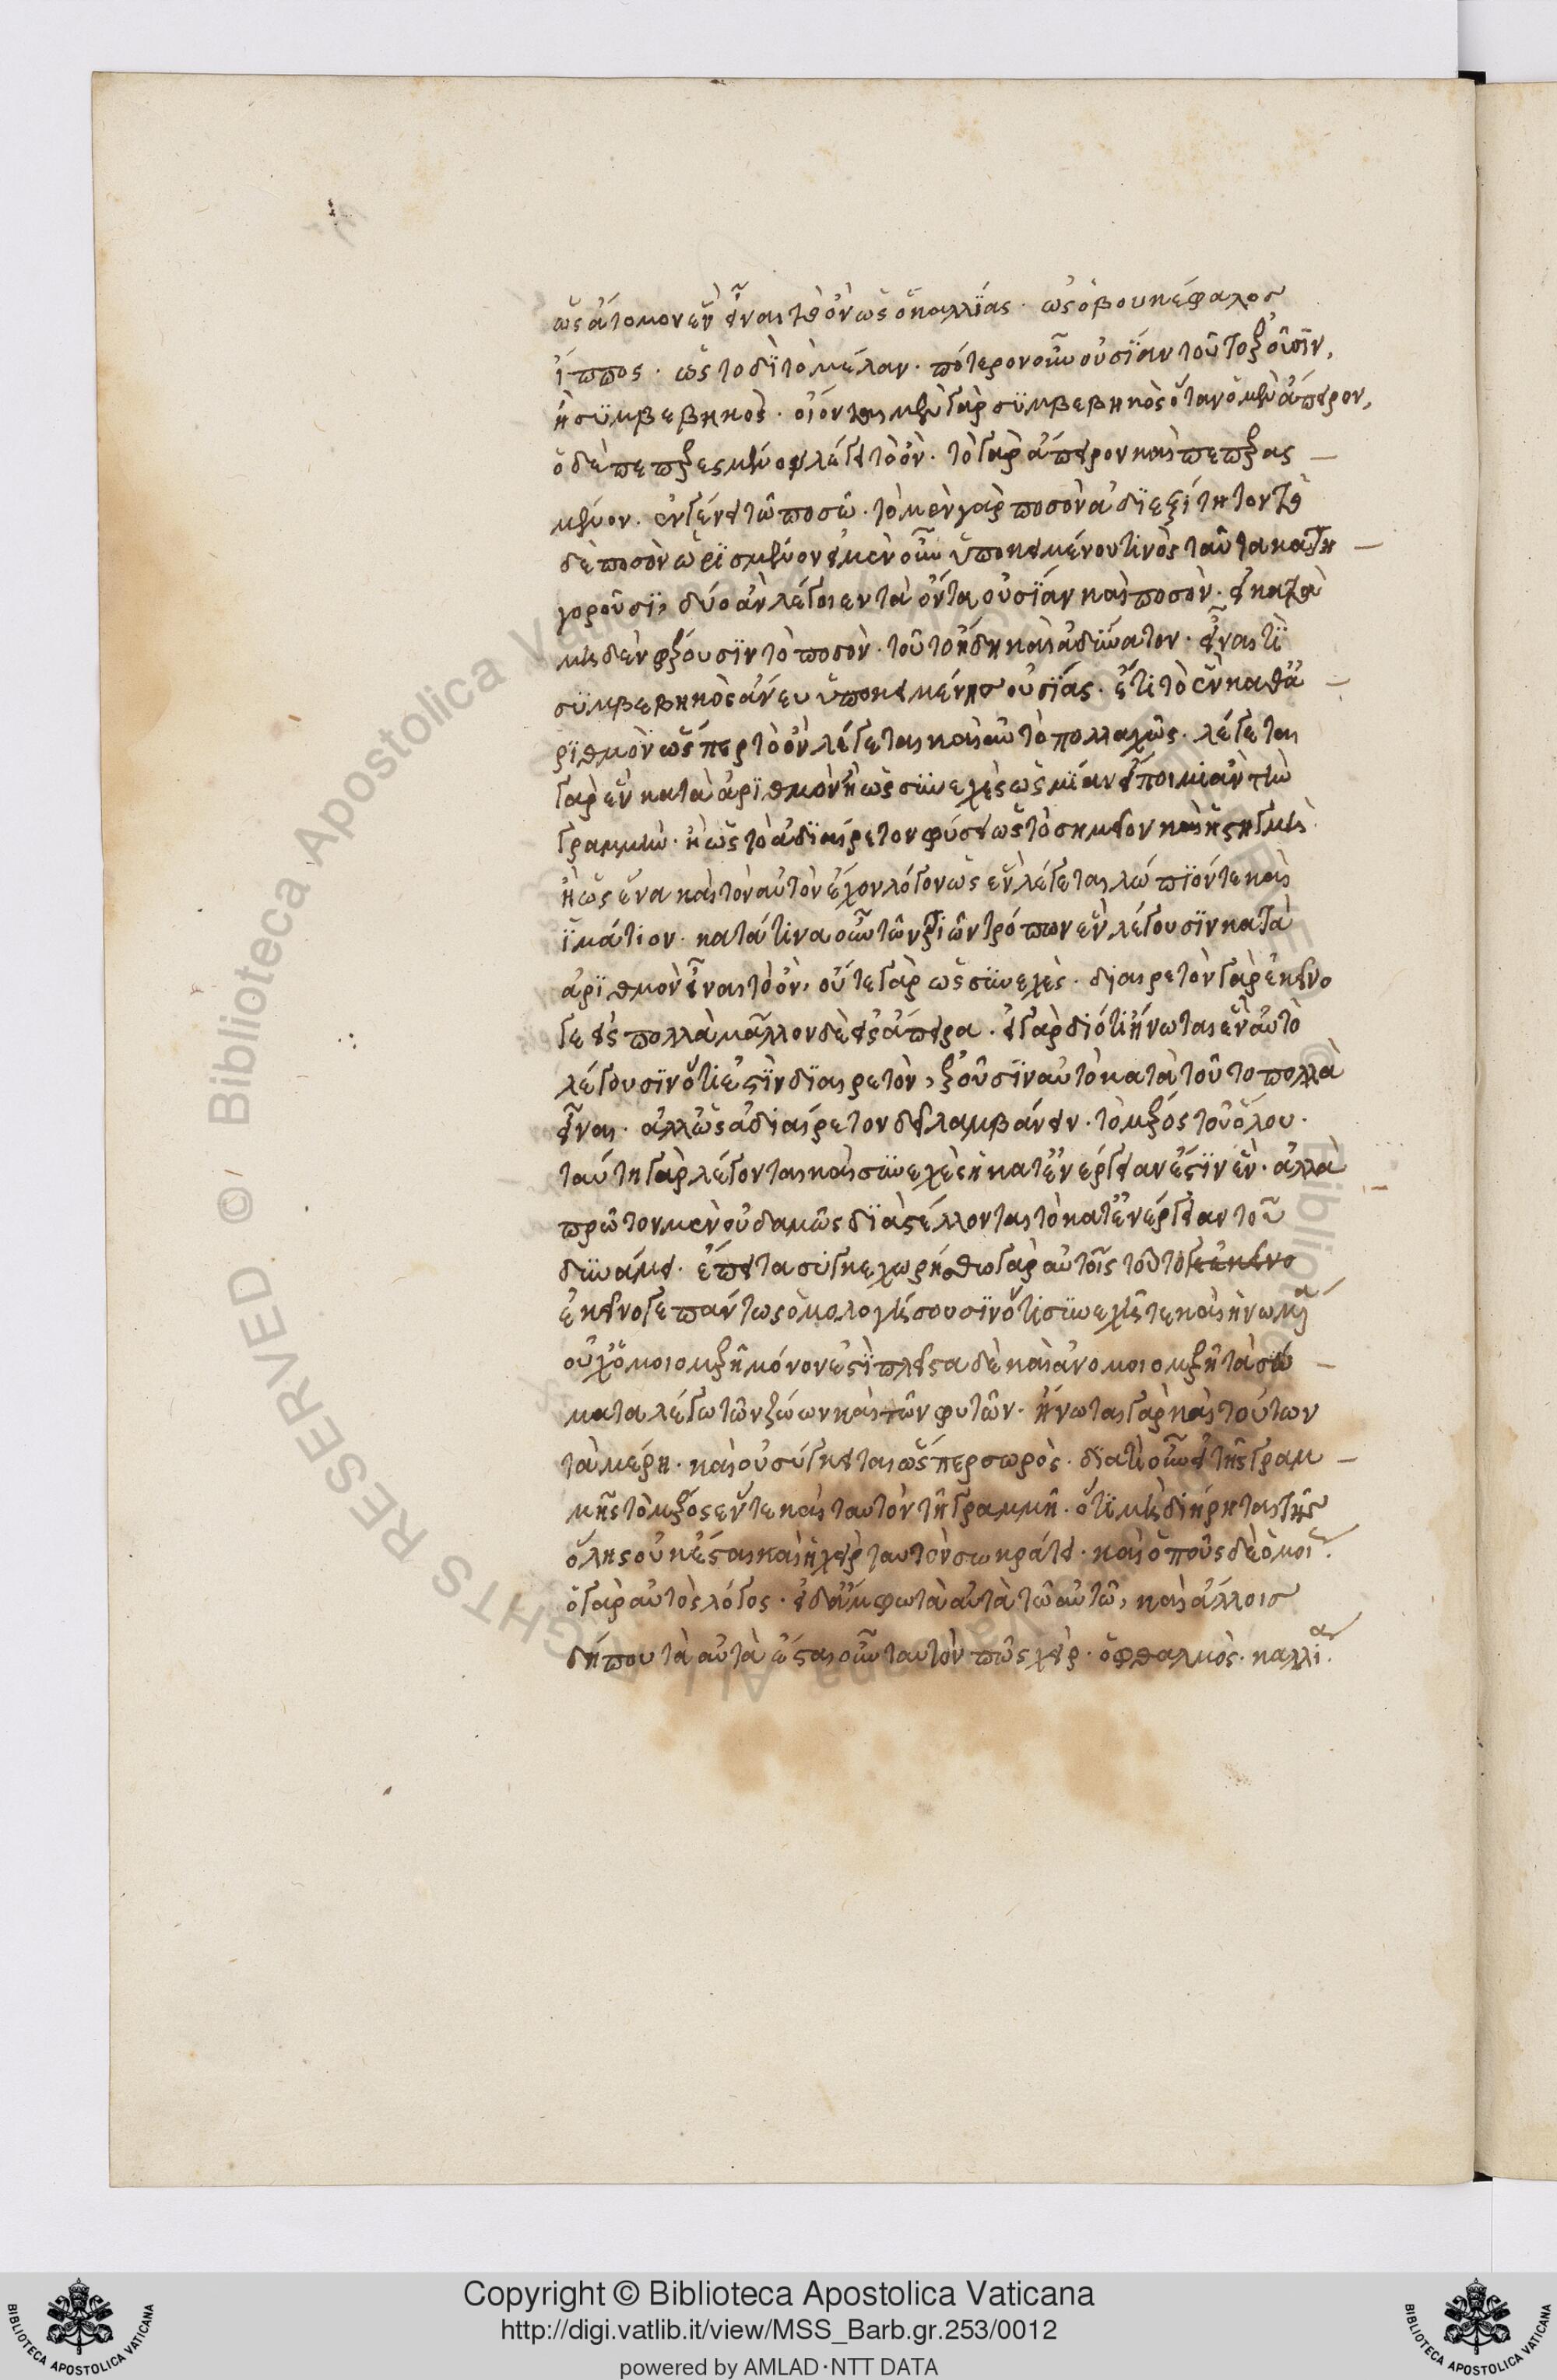 ὡς ἄτομον ἓν εἶναι τὸ ὂν ὡς ὁ καλλίας · ὡς ὁ βουκέφαλος
ἵππος · ὡς τοδὶ τὸ μέλαν · πότερον οὖν οὐσίαν τοῦτο ἐροῦσιν,
ἢ συμβεβηκὸς · οἷόν ται μὲν γὰρ συμβεβηκὸς ὅταν ὁ μὲν ἄπειρον,
ὁ δὲ πεπερασμένον λέγει τὸ ὄν · τὸ γὰρ ἄπειρον καὶ πεπερασ
μένον · ἐν γένει τῶ ποσῶ · τὸ μὲν γὰρ ποσὸν ἀδιεξίτητον τὸ
δὲ ποσὸν ὡρισμένον εἰ μὲν οὖν ὑποκειμένου τινὸς ταῦτα κατη
γοροῦσι, δύο ἂν λέγοιεν τὰ ὄντα οὐσίαν καὶ ποσὸν · εἰ κατὰ
μηδὲν φέρουσιν τὸ ποσὸν · τοῦτο ἤδη καὶ ἀδύνατον · εἶναι τὶ
συμβεβηκὸς ἄνευ ὑποκειμένης οὐσίας · ἔτι τὸ ἓν καθ' ἀ
ριθμὸν ὥσπερ τὸ ὂν λέγεται καὶ αὐτὸ πολλαχῶς · λέγεται
γὰρ ἓν κατὰ ἀριθμὸν ἢ ὡς συνεχὲς ὡς μίαν εἴποιμι ἂν τὴν
γραμμὴν · ἢ ὡς τὸ ἀδιαίρετον φύσει ὡς τὸ σημεῖον καὶ ἡ στιγμὴ
ἢ ὡς ἕνα καὶ τὸν αὐτὸν ἔχον λόγον ὡς ἓν λέγεται λώπιόν τε καὶ
ἱμάτιον · κατὰ τίνα οὖν τῶν τριῶν τρόπων ἓν λέγουσιν κατὰ
ἀριθμὸν εἶναι τὸ ὄν, οὔτε γὰρ ὡς συνεχὲς · διαιρετὸν γὰρ ἐκεῖνο
γε εἰς πολλὰ μᾶλλον δὲ εἰς ἄπειρα · εἰ γὰρ διότι ἥνωται ἓν αὐτὸ
λέγουσιν ὅτι ἐστὶν διαιρετὸν, ἐροῦσιν αὐτὸ κατὰ τοῦτο πολλὰ
εἶναι · ἀλλ' ὡς ἀδιαίρετον δεῖ λαμβάνειν · τὸ μέρος τοῦ ὅλου ·
ταύτη γὰρ λέγονται καὶ συνεχὲς ἢ κατ' ἐνέργειαν ἐστὶν ἓν · ἀλλὰ
πρῶτον μὲν οὐδαμῶς διαστέλλονται τὸ κατ' ἐνέργειαν τοῦ
δυνάμει · ἔπειτα συγκεχωρήσθω γὰρ αὐτοῖς τοῦτό γε ἐκεῖνο
ἐκεῖνό γε πάντως ὁμολογήσουσιν ὅτι συνεχῆ τε καὶ ἡνωμένα
οὐχ ὁμοιομερῆ μόνον ἐστὶ πλεῖστα δὲ καὶ ἀνομοιομερῆ τὰ σώ
ματα λέγω τῶν ζώων καὶ τῶν φυτῶν · ἥνωται γὰρ καὶ τούτων
τὰ μέρη · καὶ οὐ σύγκειται ὥσπερ σωρὸς · διατὶ οὖν εἰ τῆς γραμ
μῆς τὸ μέρος ἕν τε καὶ ταυτὸν τῆ γραμμῆ · ὅτι μὴ διήρηται τῆς
ὅλης οὐκ ἔσται καὶ ἡ χεὶρ ταυτὸν σωκράτει · καὶ ὁ ποῦς δὲ ὁμοί
ὁ γὰρ αὐτὸς λόγος · εἰ δ' ἄμφω τὰ αὐτὰ τῶ αὐτῶ, καὶ ἀλλοις
δήπου τὰ αὐτὰ ἔσται οὖν ταυτὸν πῶς χεὶρ · ὀφθαλμὸς · καλλί